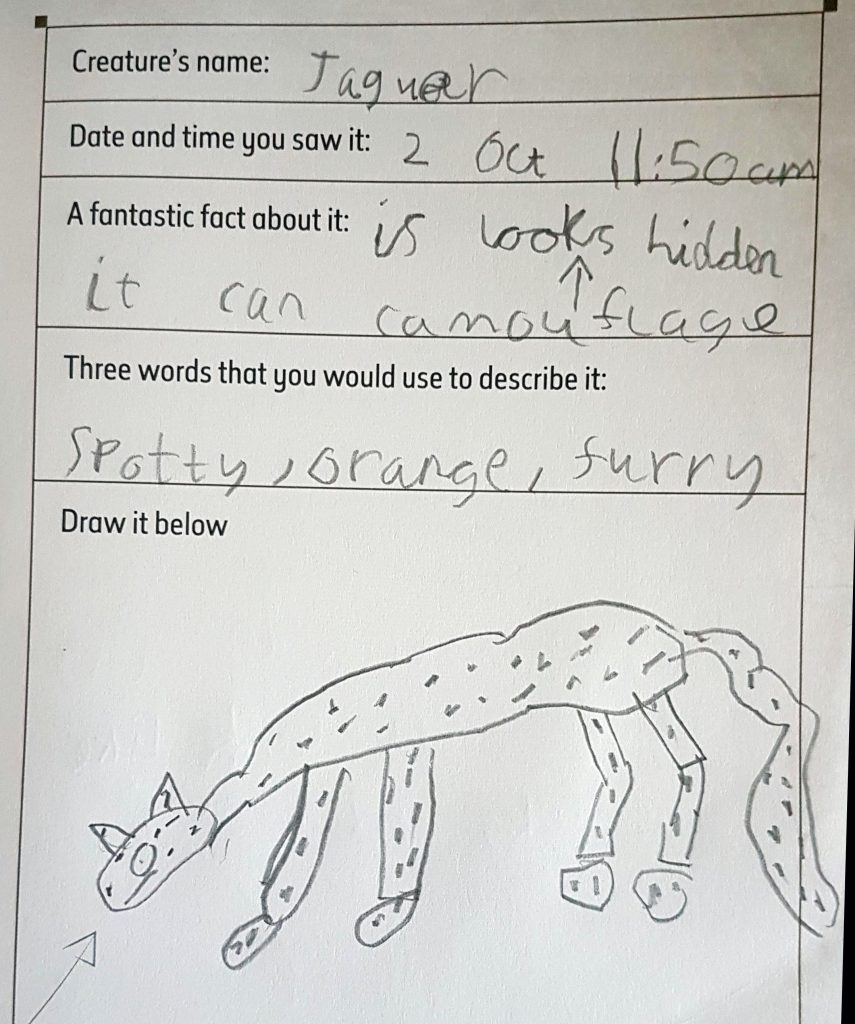 Creature's name: Jaguer
Date and time you saw it: 2 Oct 11:50am
A fantastic fact about it: is looks hidden
it can camouflage
Three words that you would use to describe it:
spotty, orange, furry
Draw it below